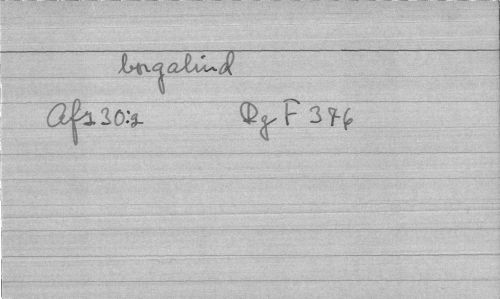 borgalind
Afs 30:2 Rg F 376